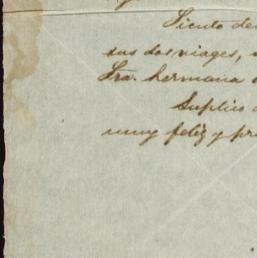 Siento de
sus dos viages,
Sra. hermana
Suplico
muy feliz y pr